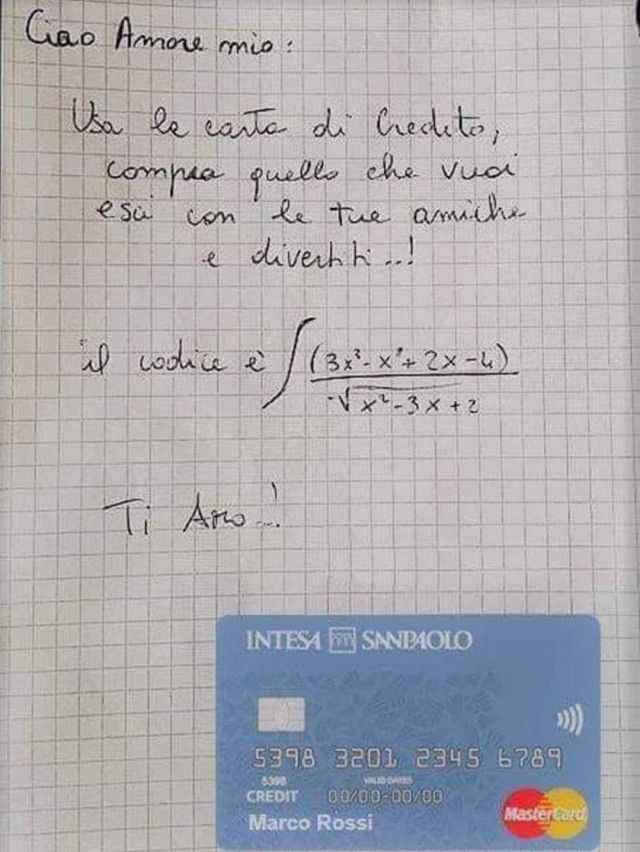 Ciao Amore mio:
Usa la carta di Credito,
compra quello che vuoi
esci con le tue amiche
e divertiti..!
il codice è ∫ (3x³-x²+2x-4)
√x²-3x+2
Ti Amo..!
INTESA SANPAOLO
5398 3201 2345 6789
5398 VALID DATES
CREDIT 00/00-00/00
Marco Rossi
MasterCard